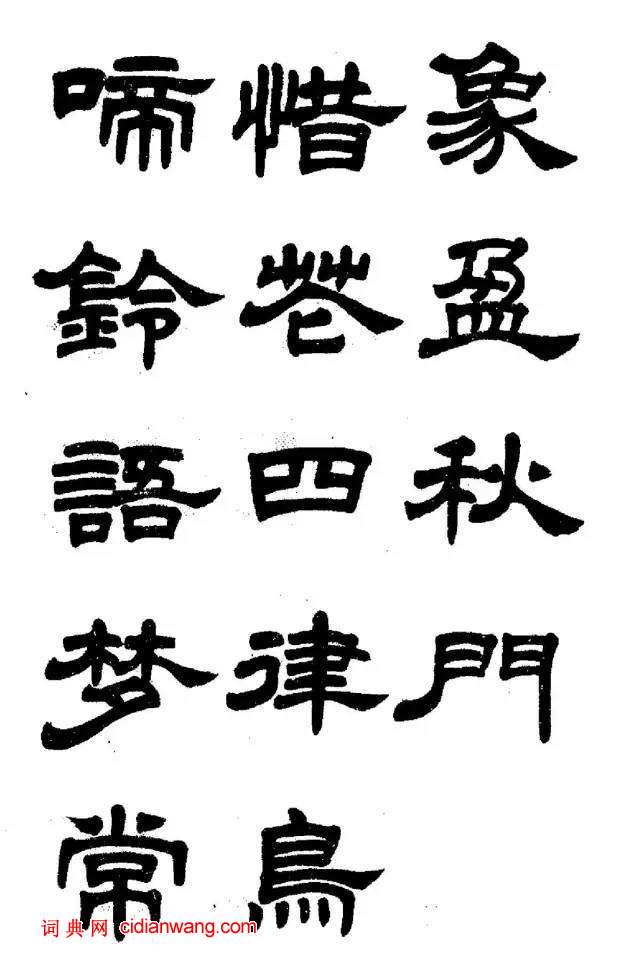 象盈秋門
惜花四律鳥
啼鈴語梦常
词典网 cidianwang.com